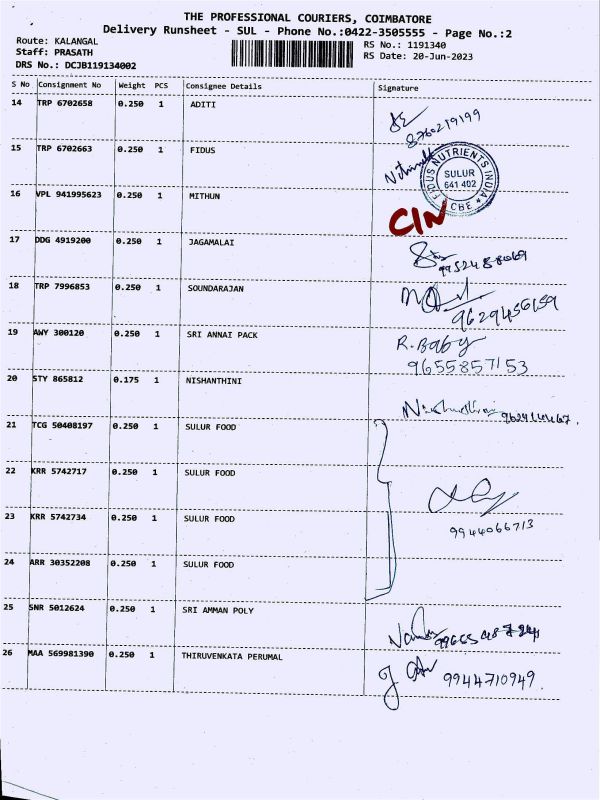 THE PROFESSIONAL COURIERS, COIMBATORE
Delivery Runsheet - SUL - Phone No.:0422-3505555 - Page No.:2
Route: KALANGAL
Staff: PRASATH
DRS No.: DCJB119134002
RS No.: 1191340
RS Date: 20-Jun-2023
S No Consignment No Weight PCS Consignee Details Signature
14 TRP 6702658 0.250 1 ADITI
8760219199
15 TRP 6702663 0.250 1 FIDUS
FIDUS NUTRIENTS INDIA
SULUR
641 402
* CBE *
16 VPL 941995623 0.250 1 MITHUN
C/N
17 DDG 4919200 0.250 1 JAGAMALAI
18 TRP 7996853 0.250 1 SOUNDARAJAN
19 AWY 300120 0.250 1 SRI ANNAI PACK
R. Baby
9655857153
20 STY 865812 0.175 1 NISHANTHINI
21 TCG 50408197 0.250 1 SULUR FOOD
22 KRR 5742717 0.250 1 SULUR FOOD
23 KRR 5742734 0.250 1 SULUR FOOD
9944066713
24 ARR 30352208 0.250 1 SULUR FOOD
25 SNR 5012624 0.250 1 SRI AMMAN POLY
26 MAA 569981390 0.250 1 THIRUVENKATA PERUMAL
9944710949